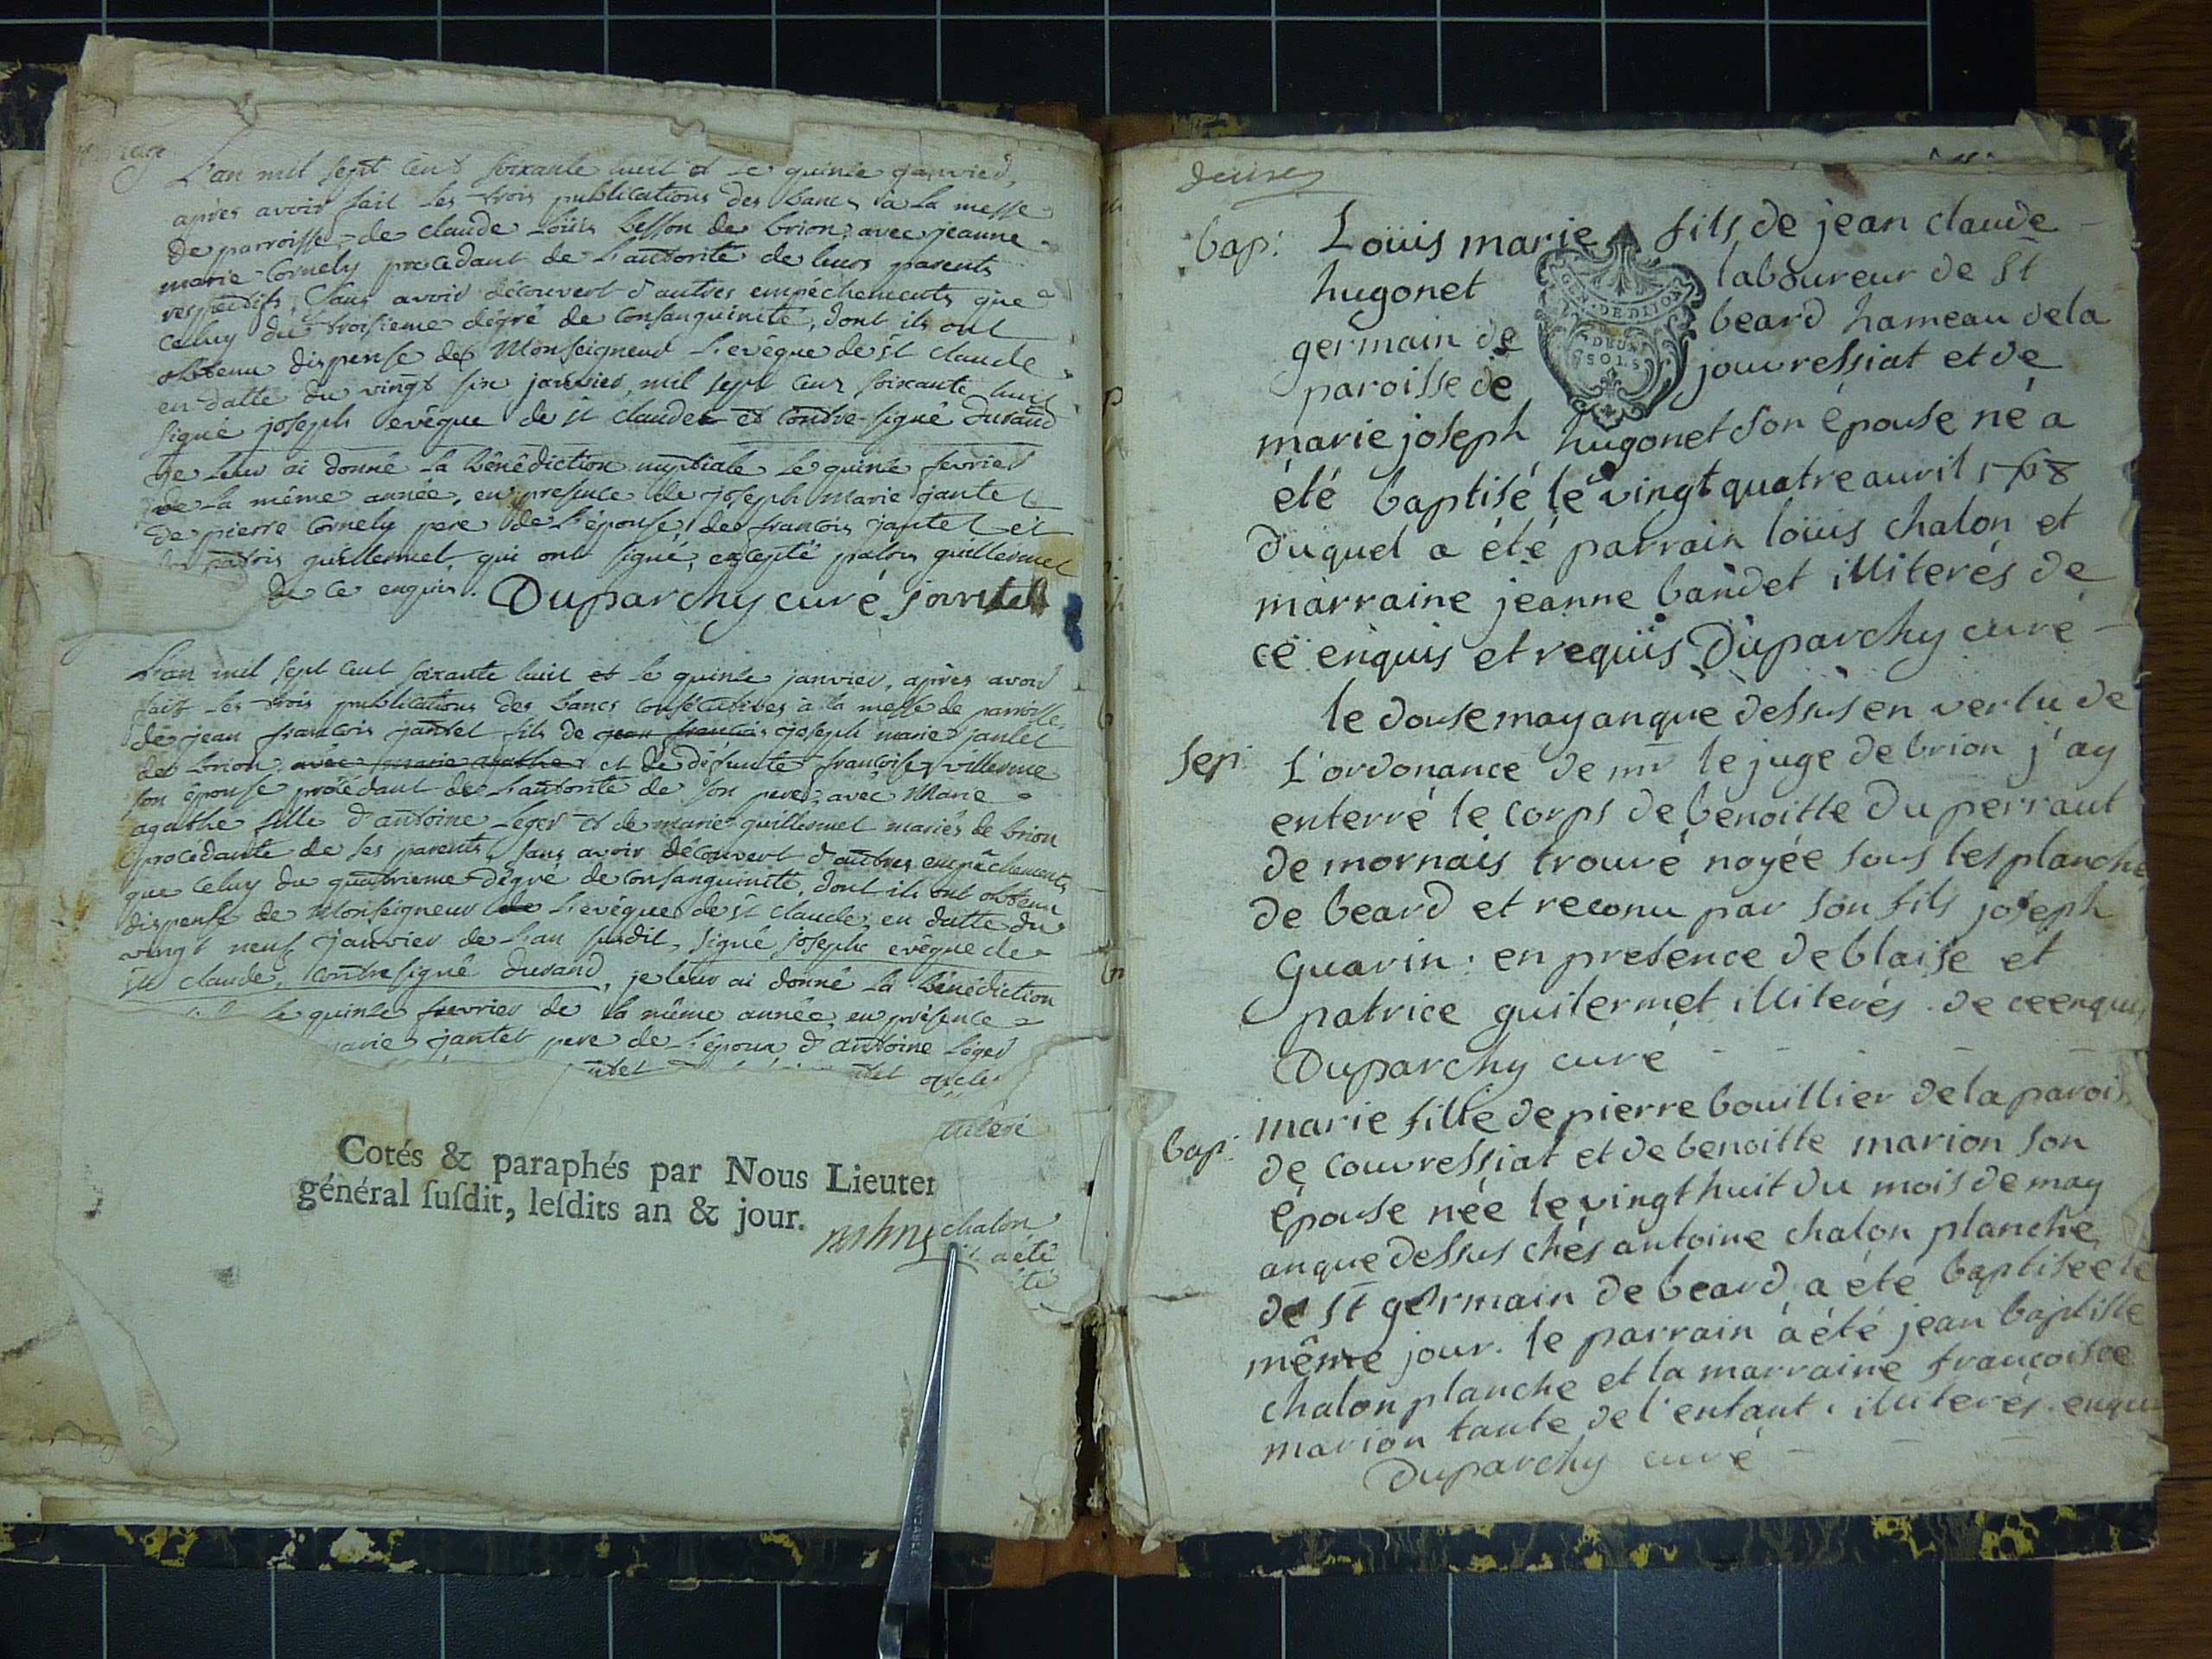 L'an mil sept cent soixante huit et le quinze janvier,
après avoir fait les trois publications des bancs à la messe
de parroisse de claude Loüis besson de brion, avec jeanne
marie Cornely procedant de l'autorité de leurs parents
respectifs, sans avoir découvert d'autres empéchements que
celuy du troisieme dégré de consanguinité, dont ils ont
obtenu dispense de Monseigneur l'evêque de st claude
en datte du vingt six janvier mil sept cent soixante huit
signé joseph evêque de st claude et contre-signé durand
je leur ai donné la bénédiction nuptiale le quinze fevrier
de la même année, en presence de joseph marie jantet
de pierre Cornely pere de l'épouse, de francois jantet et
de patris guillermet, qui ont signé, excepté patris guillermet
de ce enquis. Duparchy curé jantet
L'an mil sept cent soixante huit et le quinze janvier, après avoir
fait les trois publications des bancs consécutives à la messe de parroisse
de jean francois jantet fils de jean francois joseph marie jantet
de brion, avec marie agathe et de défunte francoise villerme
son épouse procédant de l'autorité de son pere, avec Marie
agathe fille d'antoine Leger et de marie guillermet mariés de brion
procedante de ses parents, sans avoir découvert d'autres empêchements
que celuy du quatrieme dégré de consanguinité, dont ils ont obtenu
dispense de Monseigneur de l'evêque de st claude, en datte du
vingt neuf janvier de l'an susdit, signé joseph evêque de
st claude, contresigné durand, je leur ai donné la bénédiction
le quinze fevrier de la même année, en présence
marie jantet pere de l'époux d'antoine Léger
Cotés & paraphés par Nous Lieuten
général susdit, lesdits an & jour.
chalon
a été
bap: Loüis marie fils de jean claude
hugonet laboureur de st
germain de beard hameau de la
paroisse de jouvressiat et de
GEN. DE DIJON
DEUX
SOLS
marie joseph hugonet son épouse né a
été baptisé le vingt quatre avril 1768
duquel a été parrain loüis chalon et
marraine jeanne bandet illiterés de
ce enquis et requis Duparchy curé
le douse may an que dessus en vertu de
Sep: L'ordonance de mr le juge de brion j'ay
enterré le corps de benoitte du perraut
de mornais trouvé noyée sous les planche
de beard et reconu par son fils joseph
Guarin. en presence de blaise et
patrice guilermet illiterés de ce enquis
Duparchy curé
bap: marie fille de pierre bouillier de la parois
de couvressiat et de benoitte marion son
épouse née le vingt huit du mois de may
an que dessus chés antoine chalon planche
de st germain de beard a été baptisée le
même jour. le parrain a été jean baptiste
chalon planche et la marraine francoise
marion tante de l'enfant. illiterés enquis
Duparchy curé